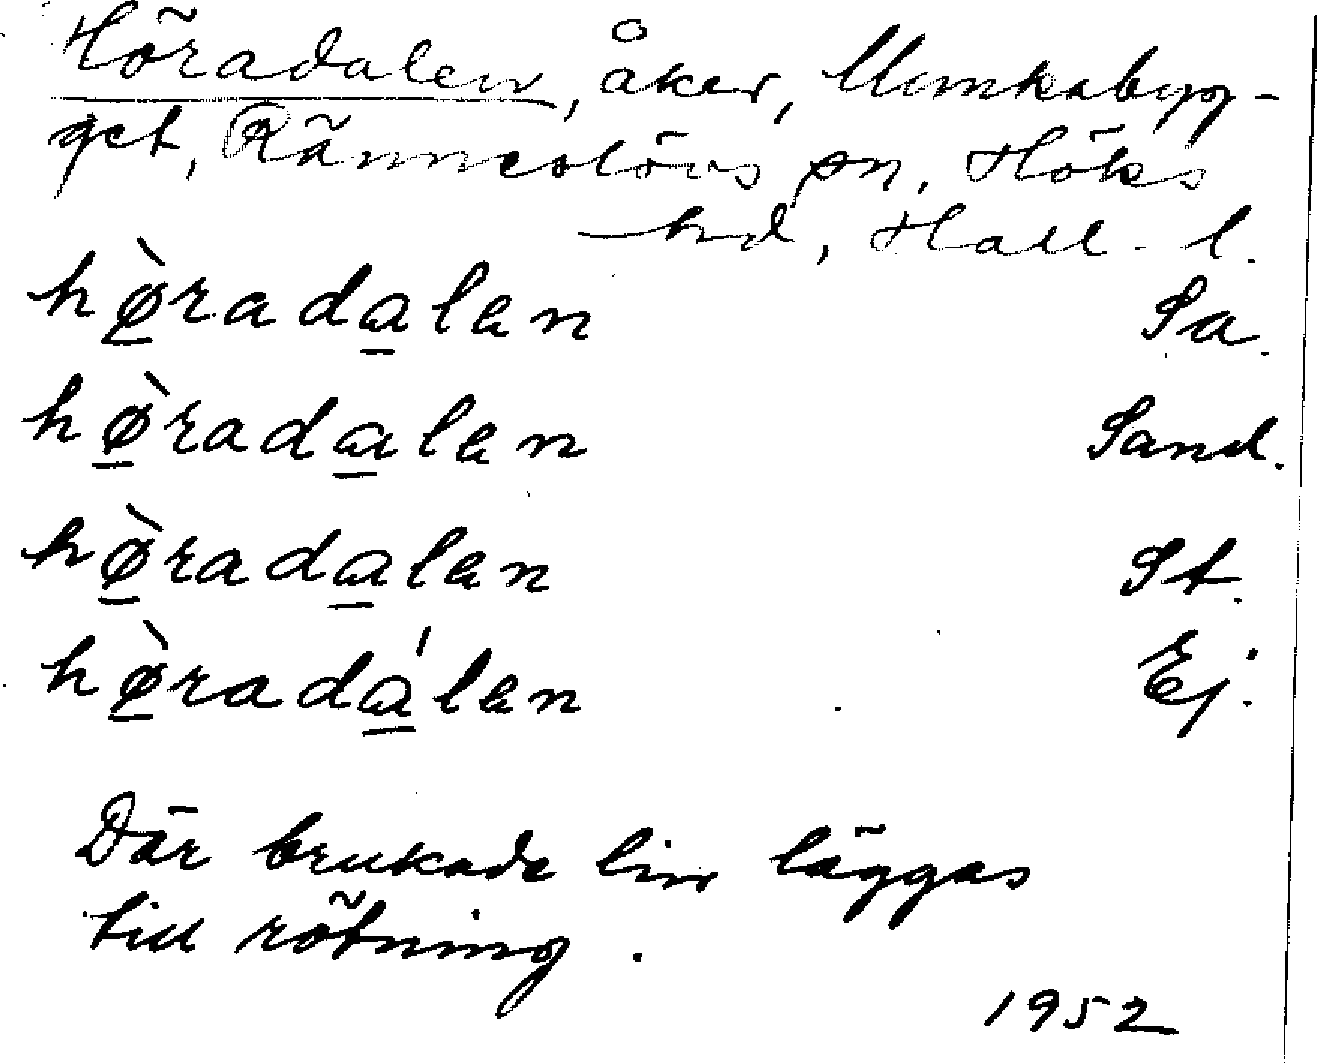 Höradalen, åker, Munkabyg-
get, Ränneslövs sn, Höks
hd, Hall. l.
hø̀radalen Sa.
hø̀radalen Sand.
hø̀radalen St.
hø̀radálen Ej.
Där brukade lin läggas
till rötning.
1952